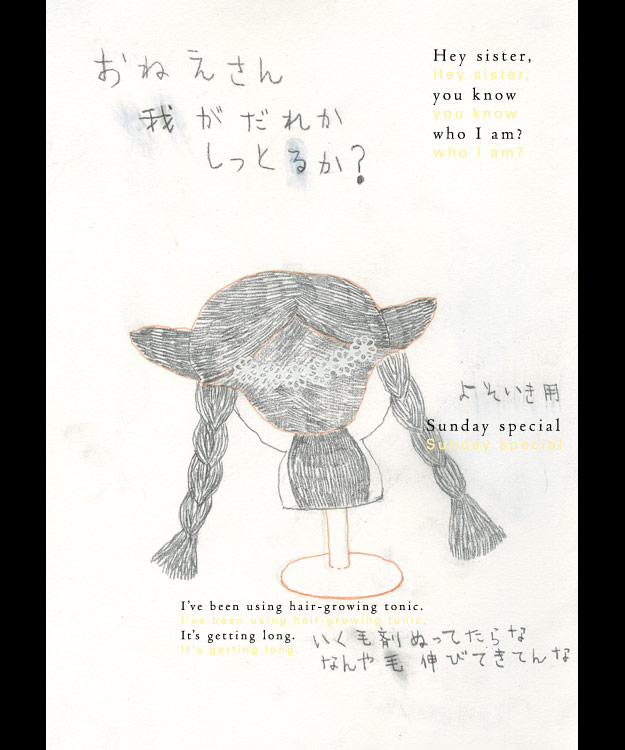 おねえさん
我がだれか
しっとるか?
Hey sister,
Hey sister,
you know
you know
who I am?
who I am?
よそいき用
Sunday special
Sunday special
I've been using hair-growing tonic.
I've been using hair-growing tonic.
It's getting long.
It's getting long.
いく毛剤ぬってたらな
なんや毛伸びてきてんな